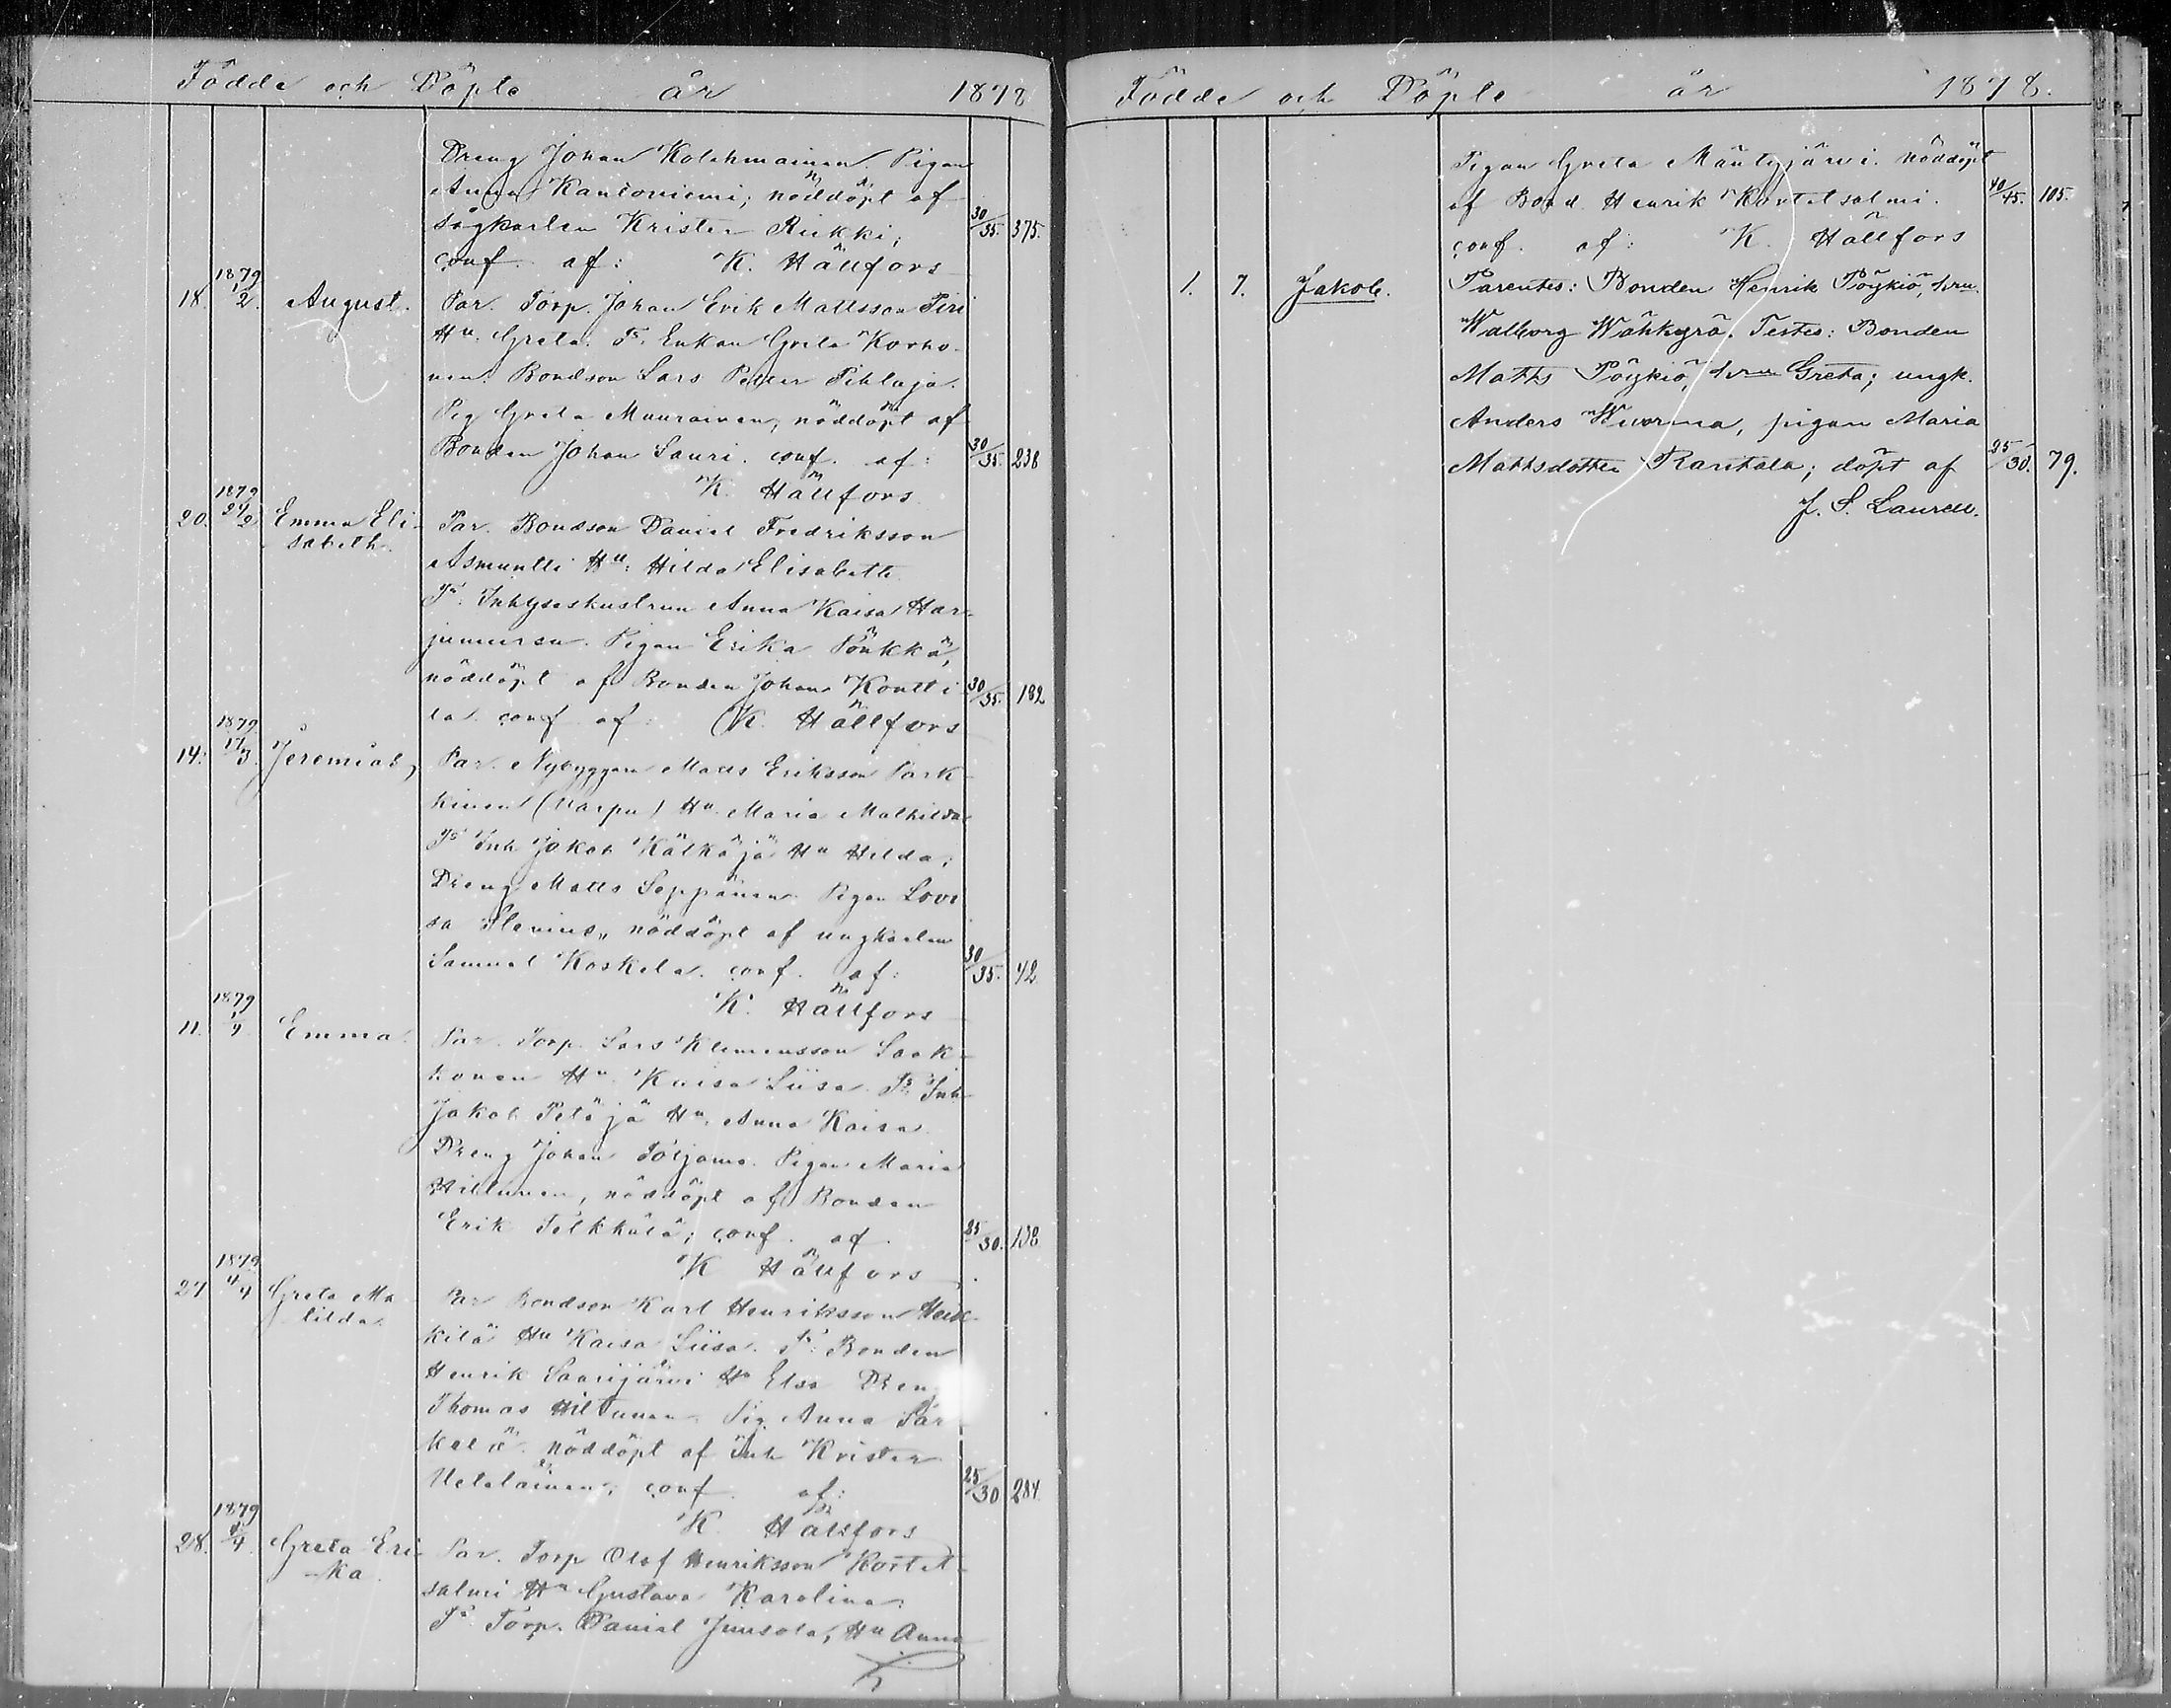 Födde och Döpte år 1878
Dreng Johan Kolehmainen Pigan
Anna Kantoniemi; nöddöpt af
sågkarlen Krister Riekki; 30/35. 375.
conf. af: K. Hällfors
18. 1879 1/2. August. Par. Torp. Johan Erik Mattsson Piri
Hu. Greta. Ts. Enkan Greta Korho-
nen. Bondson Lars Petter Pihlaja.
Pig Greta Muurainen, nöddöpt af
Bonden Johan Sauri. conf. af: 30/35. 238
K. Hällfors
20. 1879 24/2 Emma Eli- Par. Bondson Daniel Fredriksson
sabeth. Asmuntti Hu: Hilda Elisabeth
Ts. Inhyseshustrun Anna Kaisa Har-
junmursu. Pigan Erika Pönkkä,
nöddöpt af Bonden Johan Kontti- 30/35. 182
la conf af: K. Hällfors
14. 1879 17/3. Jeremias, Par. Nybyggaren Matts Eriksson Park-
kinen (Karpu) Hu Maria Mathilda
Ts Inh Jakob Kälkäjä Hu Hilda;
Dreng Matts Seppänen. Pigan Lovi
sa Flenius, nöddöpt af ungkarlen
Samuel Koskela. conf. af: 30/35. 42
K. Hällfors
11. 1879 1/4 Emma. Par. Torp. Lars Klemensson Laak-
konen Hu. Kaisa Liisa. Ts Inh
Jakob Petäjä Hu. Anna Kaisa
Dreng Johan Poljamo. Pigan Maria
Hiltunen, nöddöpt af Bonden
Erik Pelkkälä; conf. af 25/30. 138
K Hällfors
27 1879 4/4 Greta Ma Par Bondson Karl Henriksson Heik-
tilda. kilä Hu Kaisa Liisa. Ts. Bonden
Henrik Saarijärvi Hu Elsa Dren
Thomas Hiltunen. Pig. Anna Pär-
kälä. nöddöpt af Inh Krister
Uetelainen; conf. af: 25/30 284
K. Hällfors
28. 1879 4/4 Greta Eri- Par. Torp Olof Henriksson Kortet-
ka. salmi Hu Gustava Karolina.
Ts Torp. Daniel Juusola, Hu Anna
Födde och Döpte år 1878.
Pigan Greta Mäntyjärvi. nöddöpt
af Bond. Henrik Kortetsalmi. 40/45. 105.
conf. af: K. Hällfors
1. 7. Jakob. Parentes: Bonden Henrik Pöykiö, hru.
Walborg Wähkyrä. Testes: Bonden
Matts Pöykiö, hru Greta; ungk.
Anders Wuorma, pigan Maria
Mattsdotter Rantala; döpt af 25/30. 79.
J. S. Laurell.